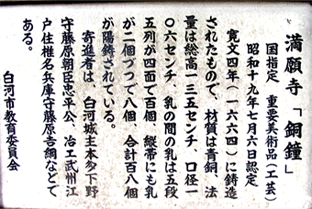 満願寺「銅鐘」
国指定 重要美術品(工芸)
昭和十九年七月六日認定
寛文四年(一六六四)に鋳造
されたもので、材質は青銅、法
量は総高一三五センチ、口径一
〇六センチ、乳の間の乳は五段
五列が四面で百個 縦帯にも乳
が二個づつで八個、合計百八個
が陽鋳されている。
寄進者は、白河城主本多下野
守藤原朝臣忠平公、冶工武州江
戸住椎名兵庫守藤原吉綱などで
ある。
白河市教育委員会